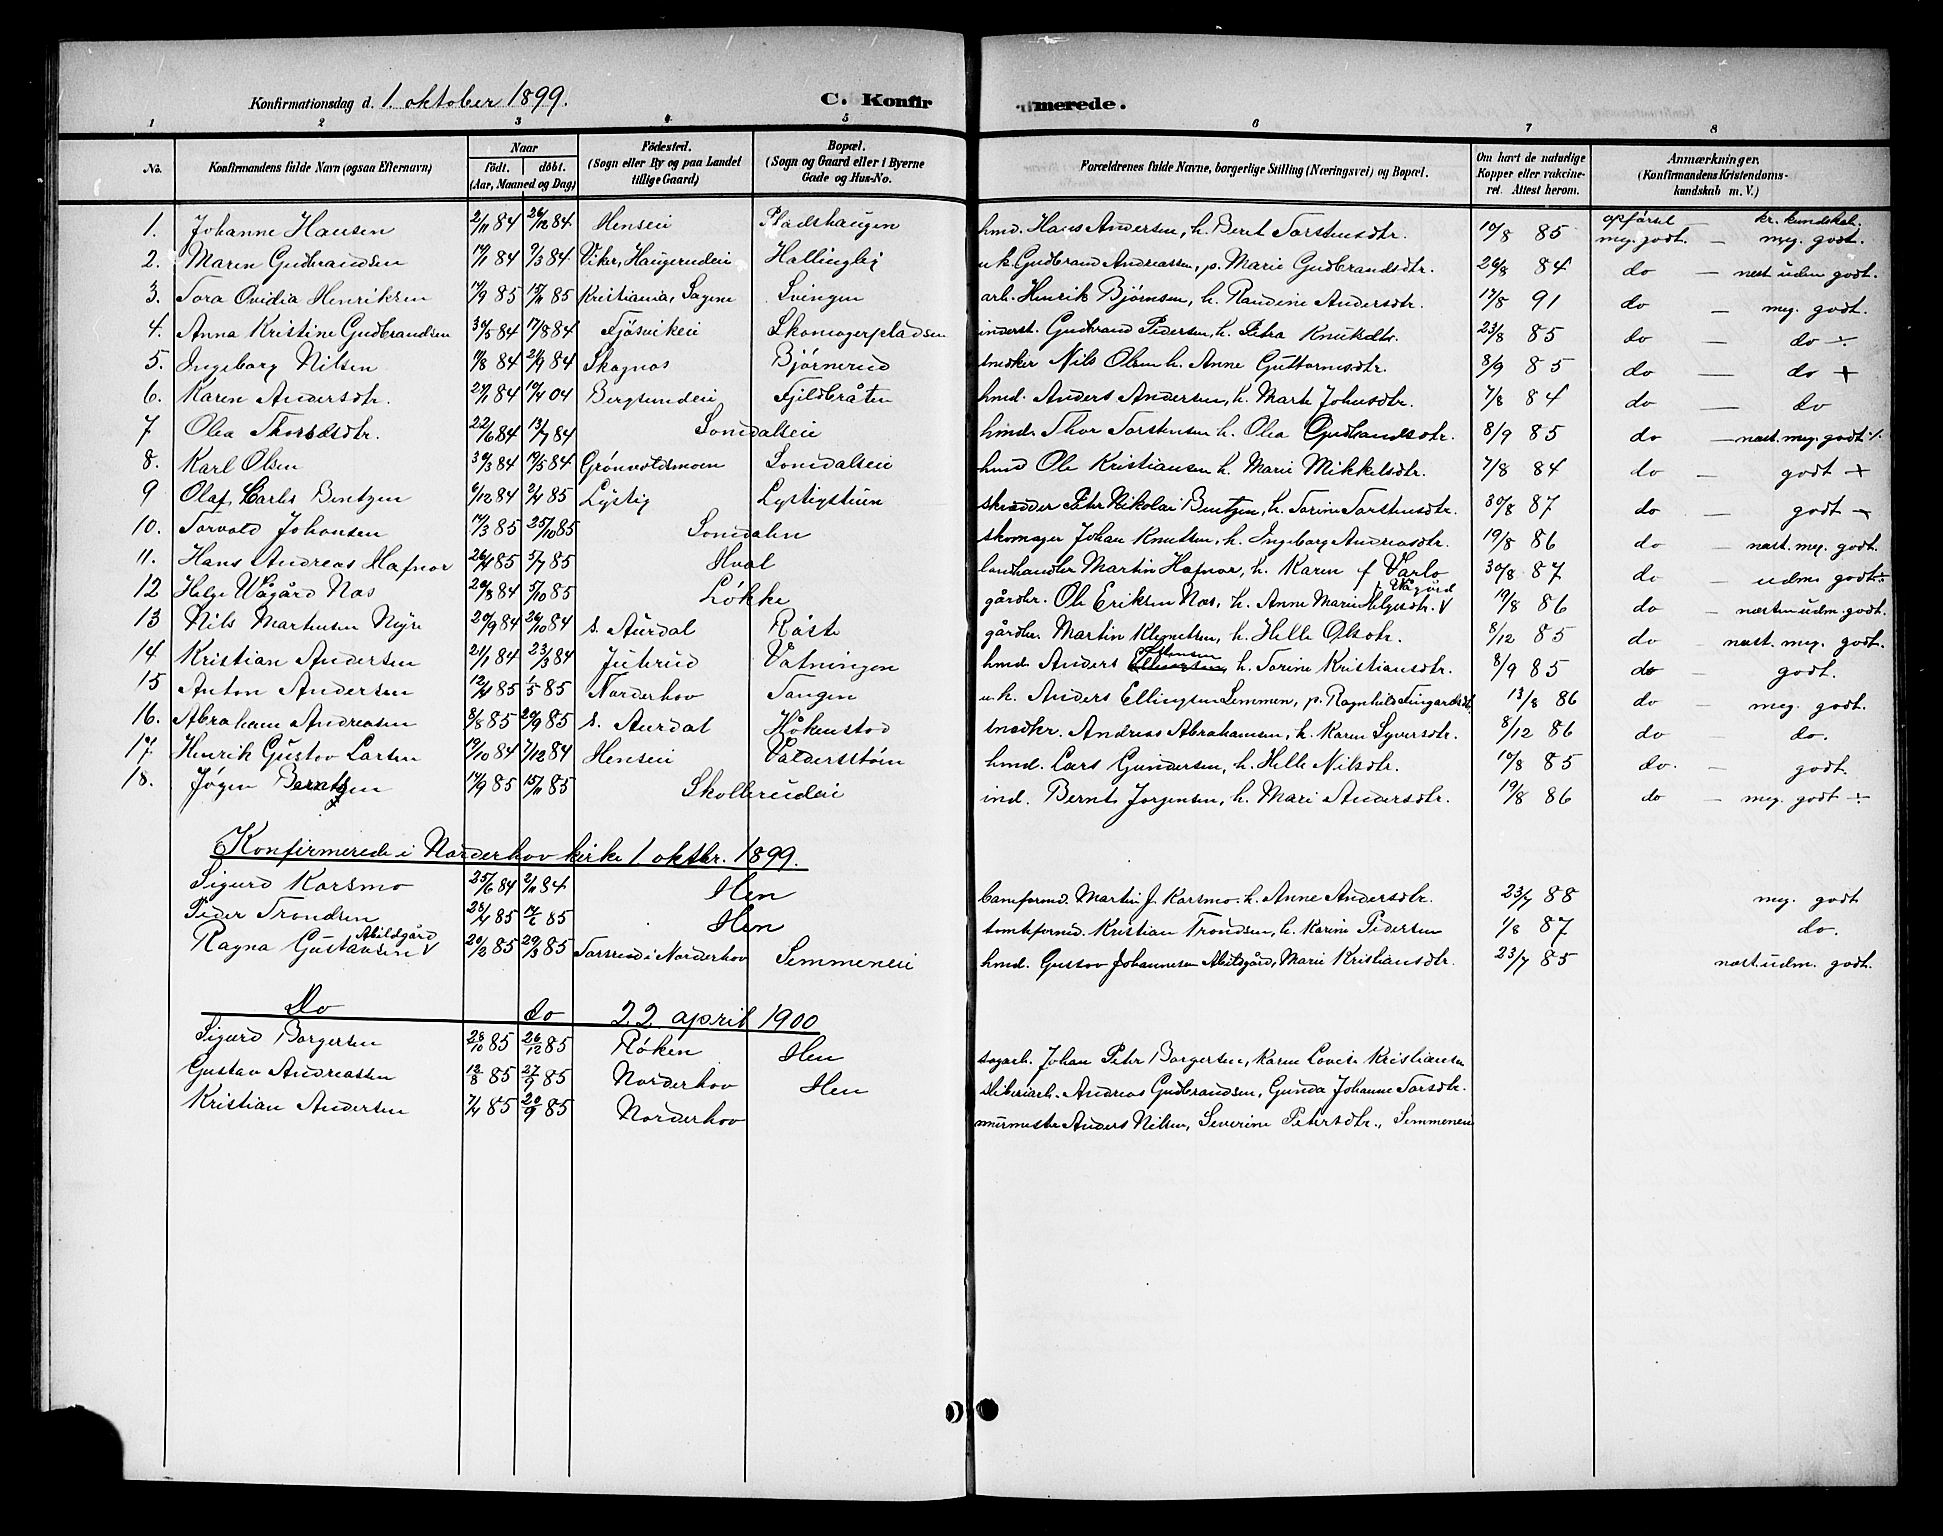 Konfirmationsdag d. 1. oktober 1899.
C. Konfirmerede.
1 2 3 4 5 6 7 8
No. Konfirmandens fulde Navn (ogsaa Efternavn) Naar født. døbt. (Aar, Maaned og Dag) Födested. (Sogn eller By og paa Landet tillige Gaard) Bopæl. (Sogn og Gaard eller i Byerne Gade og Hus-No. Forældrenes fulde Navne, borgerlige Stilling (Næringsvei) og Bopæl. Om havt de naturlige Kopper eller vakcineret. Attest herom. Anmærkninger. (Konfirmandens Kristendomskundskab m. V.)
opførsel — kr. kundskab.
1. Johanne Hansen 2/11 84 26/12 84 Henseie Pladshaugen hmd. Hans Andersen, h. Beret Torstensdtr. 10/8 85 meg. godt. — meg. godt.
2. Maren Gudbrandsen 17/1 84 9/3 84 Viker, Haugerudeie Hallingby u.k. Gudbrand Andreassen, p. Marie Gudbrandsdtr. 26/8 84 do — næst. udm. godt.
3. Tora Ovidia Henriksen 17/9 85 15/11 85 Kristiania, Sagene Svingen arb. Henrik Bjørnsen, h. Randine Andersdtr. 17/8 91 do — meg. godt.
4. Anna Kristine Gudbrandsen 30/5 84 17/8 84 Fjøsvikeie Skomagerpladsen inderst. Gudbrand Pedersen, h. Petra Knutsdtr. 23/8 85 do — do ÷
5. Ingeborg Nilsen 11/8 84 21/9 84 Skagnæs Bjørnerud snedker Nils Olsen h. Anne Guttormsdtr. 8/9 85 do — do +
6. Karen Andersdtr. 21/1 84 10/4 04 Bergsundeie Fjeldbråten hmd. Anders Andersen, h. Marte Johnsdtr. 7/8 84 do — do
7 Olea Thorsdtr. 22/6 84 13/7 84 Somdalseie hmd. Thor Torstensen h. Olea Gudbrandsdtr. 8/9 85 do — næst. meg. godt ÷
8. Karl Olsen 30/3 84 19/5 84 Grønvoldsmoen Somdalseie hmd Ole Kristiansen h. Marie Mikkelsdtr. 7/8 84 do — godt +
9 Olaf Carls Bentzen 6/12 84 2/4 85 Lystig Lystigstuen skrædder Peter Nikolai Bentzen, h. Torine Torstensdtr. 30/8 87 do — godt —
10. Torvald Johansen 17/3 85 25/10 85 Somdalen skomager Johan Knutsen, h. Ingeborg Andreasdtr. 19/8 86 do — næst. meg. godt.
11. Hans Andreas Hafnor 26/4 85 5/7 85 Hval landhandler Martin Hafnor, h. Karen f Varlo 30/8 87 do — udm. godt ÷
12 Helge Vågård Næs 20/8 84 5/10 85 Løkke gårdbr. Ole Eriksen Næs, h. Anne Marie Helgesdtr. Vågård 19/8 86 do — næsten udm. godt.
13 Nils Martinsen Myre 20/9 84 26/10 84 s. Aurdal Røste gårdbr. Martin Klemetsen, h. Helle Olsdtr. 8/12 85 do — næst. meg. godt.
14 Kristian Andersen 21/1 84 23/3 84 Juterud Vatningen hmd. Anders Ellingsen, h. Torine Kristiansdtr. 8/9 85 do — godt.
15 Anton Andersen 12/4 85 1/5 85 Norderhov Tangen u.k. Anders Ellingsen Semmen, p. Ragnhild Tingardsdtr. 13/8 86 do — meg. godt.
16. Abraham Andreasen 8/8 85 20/9 85 s. Aurdal Håkenstad snedkr. Andreas Abrahamsen, h. Karen Syversdtr. 8/12 86 do — do.
17. Henrik Gustav Larsen 19/10 84 7/12 84 Henseie Valdersstøen hmd. Lars Gundersen, h. Helle Nilsdtr. 10/8 85 do. — godt.
18. Jøgen Berntsen 17/9 85 15/11 85 Skollerudeie ind. Bernt Jørgensen, h. Mari Andersdtr. 19/8 86 do — meg. godt ÷
Konfirmerede i Norderhov kirke 1. oktbr. 1899.
Sigurd Karsmo 25/6 84 2/11 84 Hen baneformd. Martin J. Karsmo. h. Anne Andersdtr. 23/7 88 meg. godt
Peder Trondsen 28/4 85 85 Hen tomtformd. Kristian Trondsen, h. Karine Pedersen 1/8 87 do.
Ragna Gustavsen Abildgård 20/2 85 29/3 85 Torsrud i Norderhov Semmeneie hmd. Gustov Johannesen Abildgård, Marie Kristiansdtr. 23/7 85 næst. udm. godt.
Do do 22 april 1900
Sigurd Borgersen 28/10 85 26/12 85 Røken Hen sagarb. Johan Peter Borgersen, Karen Lovise Kristiansen
Gustav Andreassen 12/8 85 27/9 85 Norderhov Hen sliberiarb. Andreas Gudbrandsen, Gunda Johanne Torsdtr.
Kristian Andersen 7/4 85 20/9 85 Norderhov murmester Anders Nilsen, Severine Petersdtr., Semmeneie